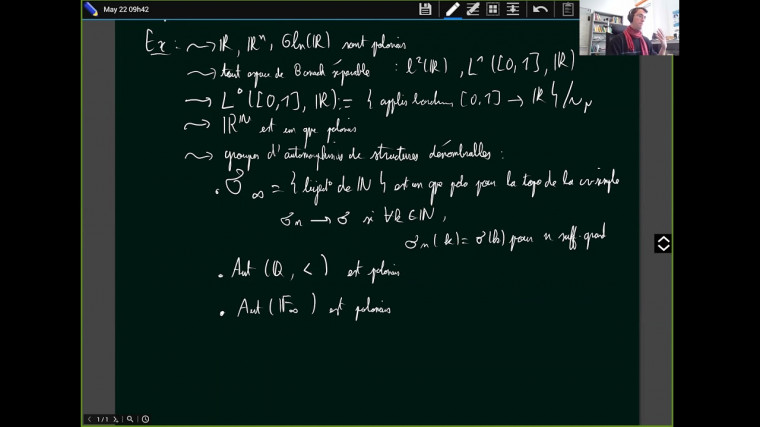 May 22 09h42
Ex : ⤳ ℝ, ℝⁿ, Gln(ℝ) sont polonais
⤳ tout espace de Banach séparable : l²(ℝ), L¹([0,1], ℝ)
⤳ L⁰([0,1], ℝ) := { applis boréliennes [0,1] → ℝ }/~
⤳ ℝ^ℕ est un gpe polonais
⤳ groupes d'automorphismes de structures dénombrables :
• 𝔖∞ = { bijecto de ℕ } est un gpe polo pour la topo de la cv simple
σn → σ si ∀k ∈ ℕ,
σn(k) = σ(k) pour n suff. grand
• Aut(ℚ, <) est polonais
• Aut(𝔽∞) est polonais
1/1